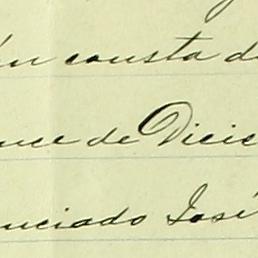 ún consta d
nce de Dicie
nciado José